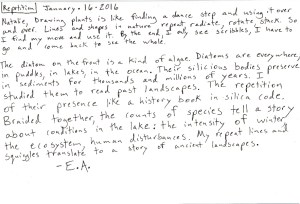 Repitition January-16-2016
Natalie, Drawing plants is like finding a dance step and using it over
and over. Lines and shapes in nature repeat, radiate, rotate, stack. So
I find my move and use it. By the end, I only see scribbles, I have to
go and come back to see the whole.
The diatom on the front is a kind of algae. Diatoms are everywhere,
in puddles, in lakes, in the ocean. Their silicious bodies preserve
in sediments for thousands and millions of years. I
studied them to read past landscapes. The repetition
of their presence like a history book in silica code.
Braided together, the counts of species tell a story
about conditions in the lake: the intensity of winter,
the ecosystem, human disturbances. My repeat lines and
squiggles translate to a story of ancient landscapes.
-E.A.